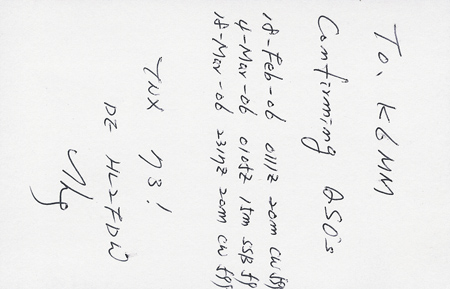 To, K6MM
Confirming QSO's
18-Feb-06 0111Z 20m CW 599
4-Mar-06 0105Z 15m SSB 59
18-Mar-06 20m CW 599
TNX 73!
DE HL2FDW